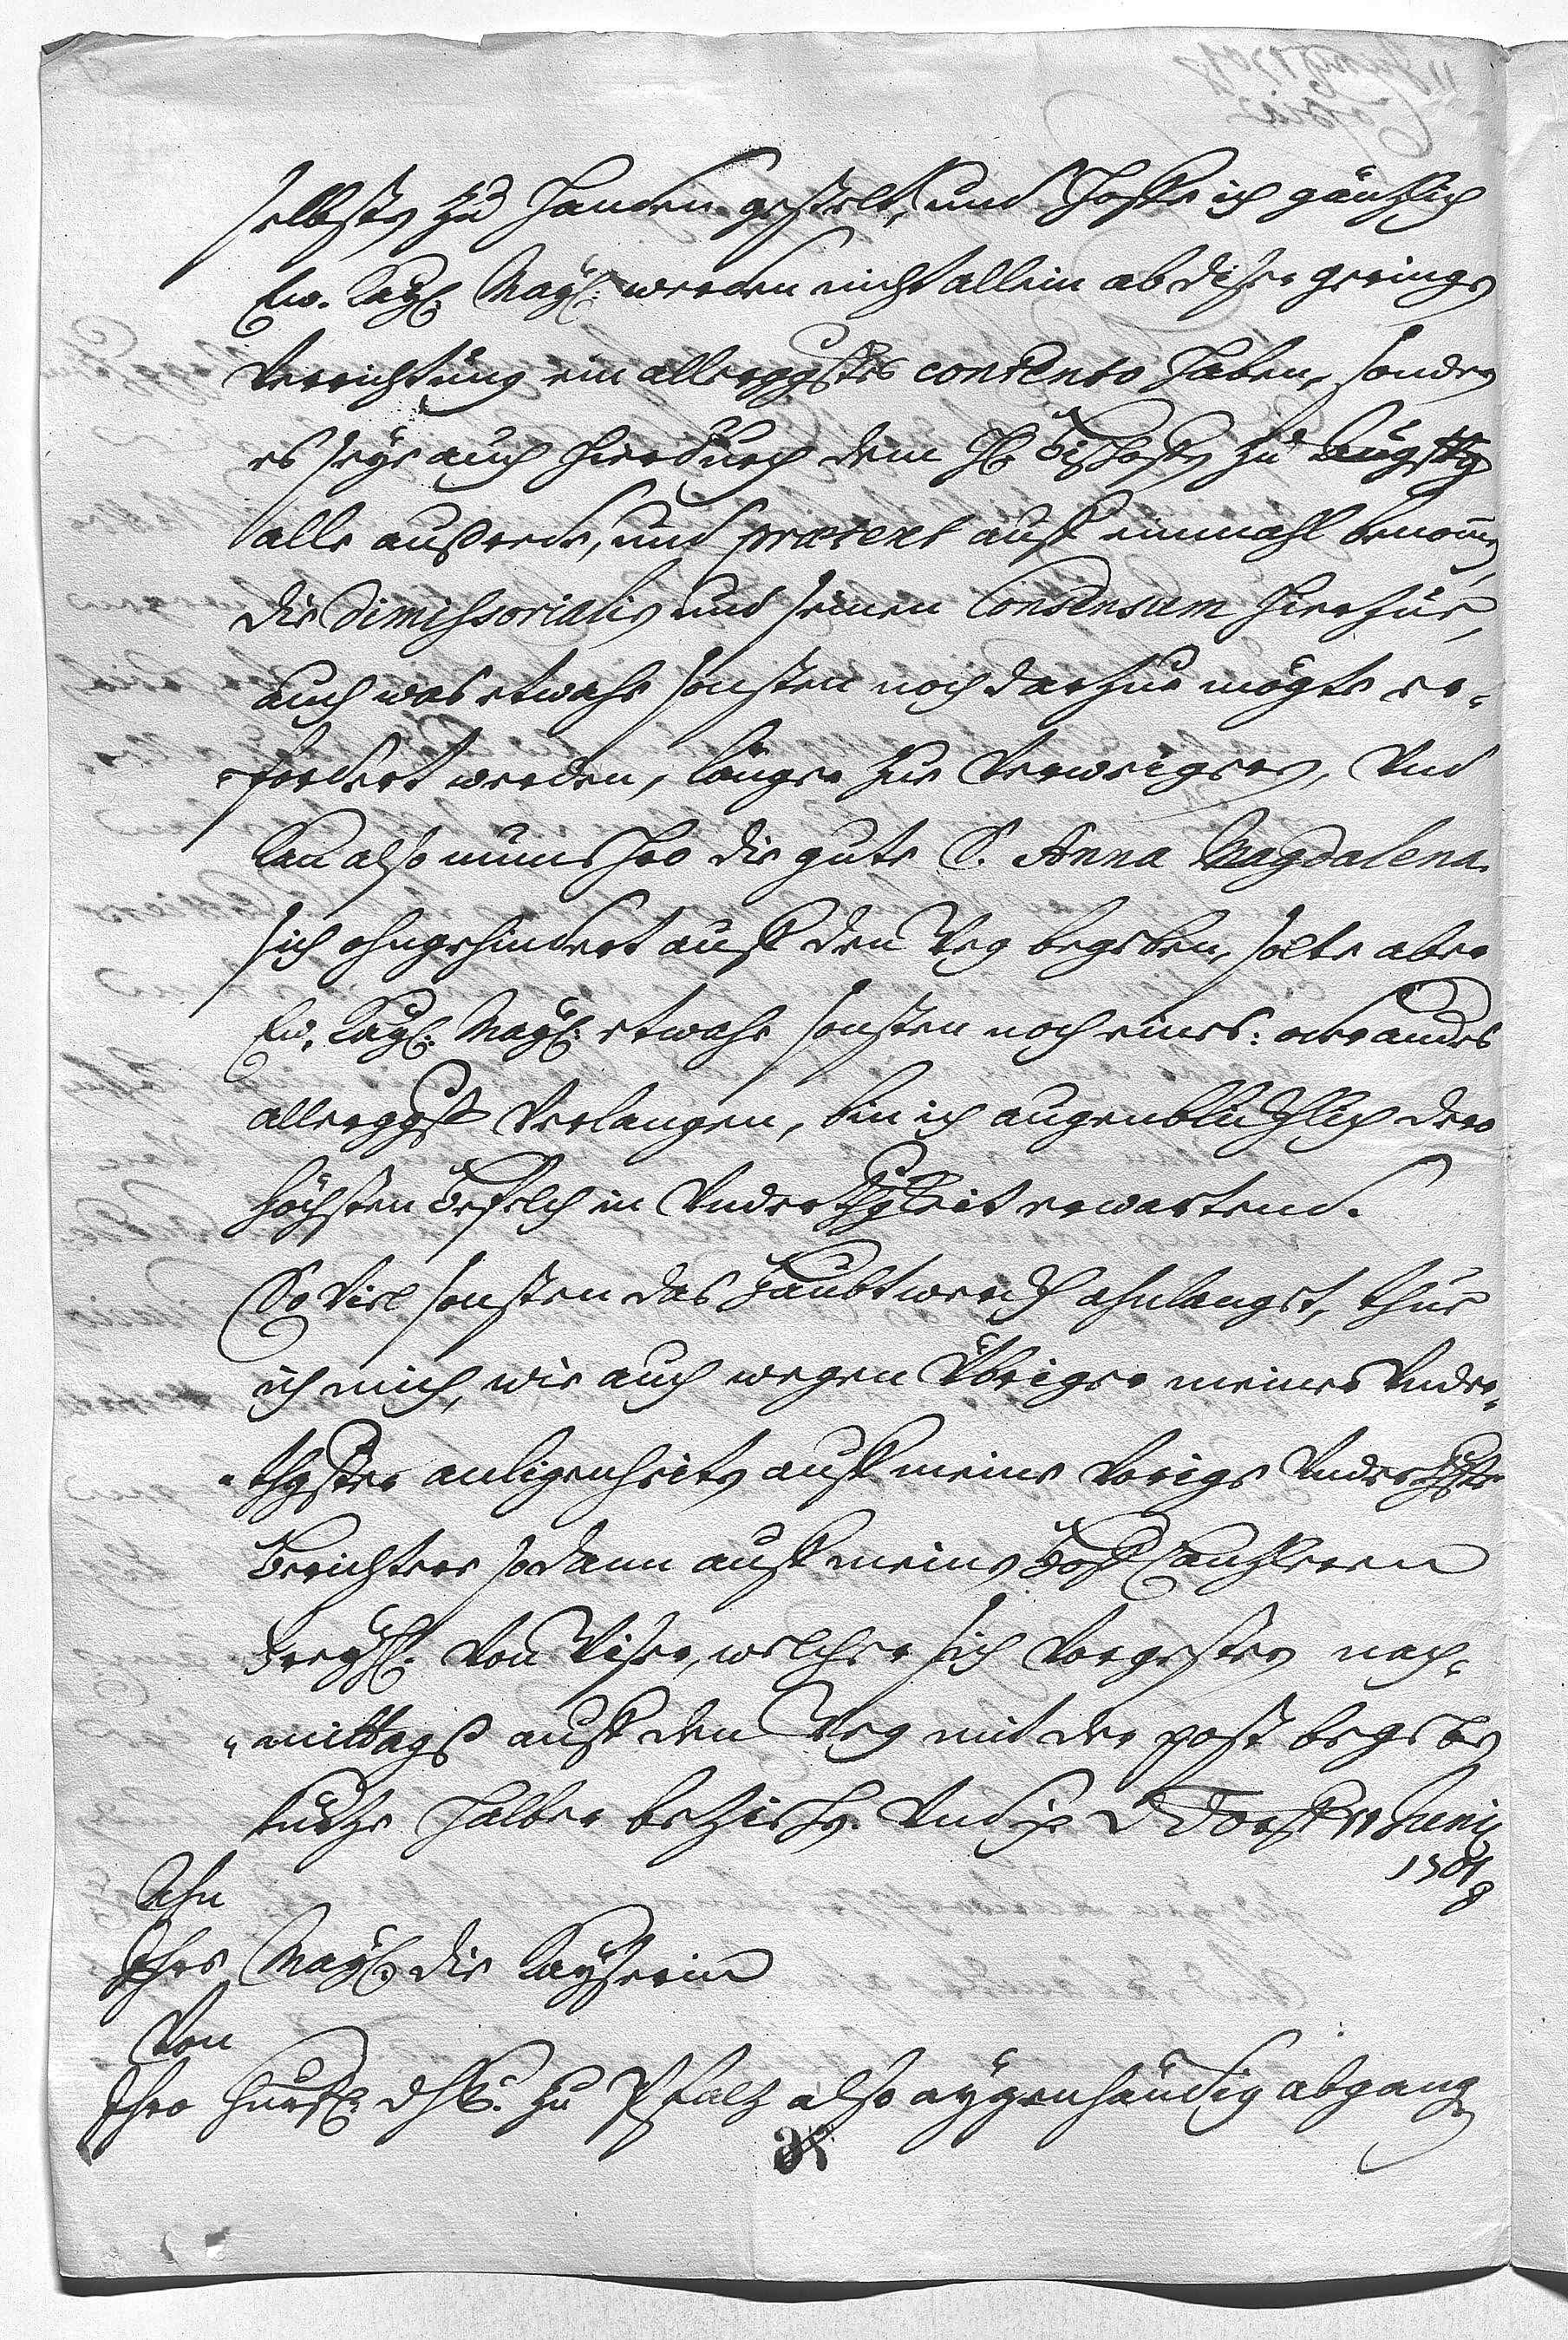 selbsten zu Handen gestelt, und hoffe ich gäntzlich
Ew. Kayl: Mayl: werden nicht allein ab diser geringen
Verrichtung ein allerggstes contento haben, sondern
es seye auch hierdurch dem H. Bischoffen zu Augspurg
alle außrede, und praetext auff einmahl benommen,
die Dimissorialen und seinen Consensum hierzue,
auch was etwahe sonsten noch darzue mögte er-
-fordert werden, länger zue Verweigeren, Und
kan also nunmehro die gute S. Anna Magdalena
sich ohngehindert auff den Weg begeben, solte aber
Ew. Kayl: Mayl: etwahe sonsten noch eines: oder anders
allerggst Verlangen, bin ich augenblicklich dero
höchsten Befelch in Underthgkeit erwartend.
So Viel sonsten das Haubtwerck ahnlangt, thue
ich mich, wie auch wegen Übriger meiner Under-
-thgster anligenheiten auff meine Vorige Underthgste
Berichter sodann auff meinen Hoff Cantzleren
Freyh. Von Wiser, welcher sich Vorgestern nach-
-mittags auff den Weg mit der post begeben
kürtze halber beziehen. Und ich DDorff 11 Junij
1708
Ahn
Ihre Mayl. die Kayserin
Von
Ihro Churfl: Dhl. zu Pfaltz also aygenhändig abgang.